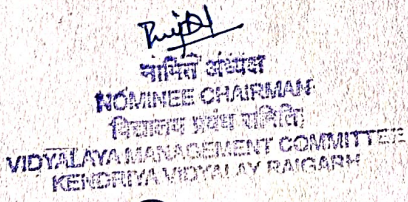 नामित अध्यक्ष
NOMINEE CHAIRMAN
विद्यालय प्रबंध समिति
VIDYALAYA MANAGEMENT COMMITTEE
KENDRIYA VIDYALAY RAIGARH